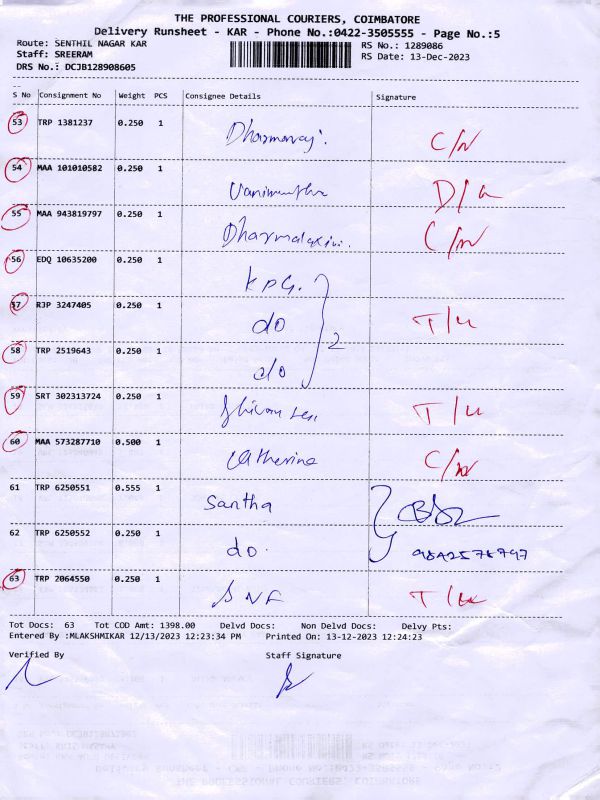 THE PROFESSIONAL COURIERS, COIMBATORE
Delivery Runsheet - KAR - Phone No.:0422-3505555 - Page No.:5
Route: SENTHIL NAGAR KAR RS No.: 1289086
Staff: SREERAM RS Date: 13-Dec-2023
DRS No.: DCJB128908605
S No Consignment No Weight PCS Consignee Details Signature
53 TRP 1381237 0.250 1 Dharmaraj. C/N
54 MAA 101010582 0.250 1 D/L
55 MAA 943819797 0.250 1 C/N
56 EDQ 10635200 0.250 1 KPG.
57 RJP 3247405 0.250 1 do 2 T/U
58 TRP 2519643 0.250 1 do
59 SRT 302313724 0.250 1 T/U
60 MAA 573287710 0.500 1 Catherine C/N
61 TRP 6250551 0.555 1 Santha
62 TRP 6250552 0.250 1 do.
63 TRP 2064550 0.250 1 SNF T/U
Tot Docs: 63 Tot COD Amt: 1398.00 Delvd Docs: Non Delvd Docs: Delvy Pts:
Entered By :MLAKSHMIKAR 12/13/2023 12:23:34 PM Printed On: 13-12-2023 12:24:23
Verified By Staff Signature